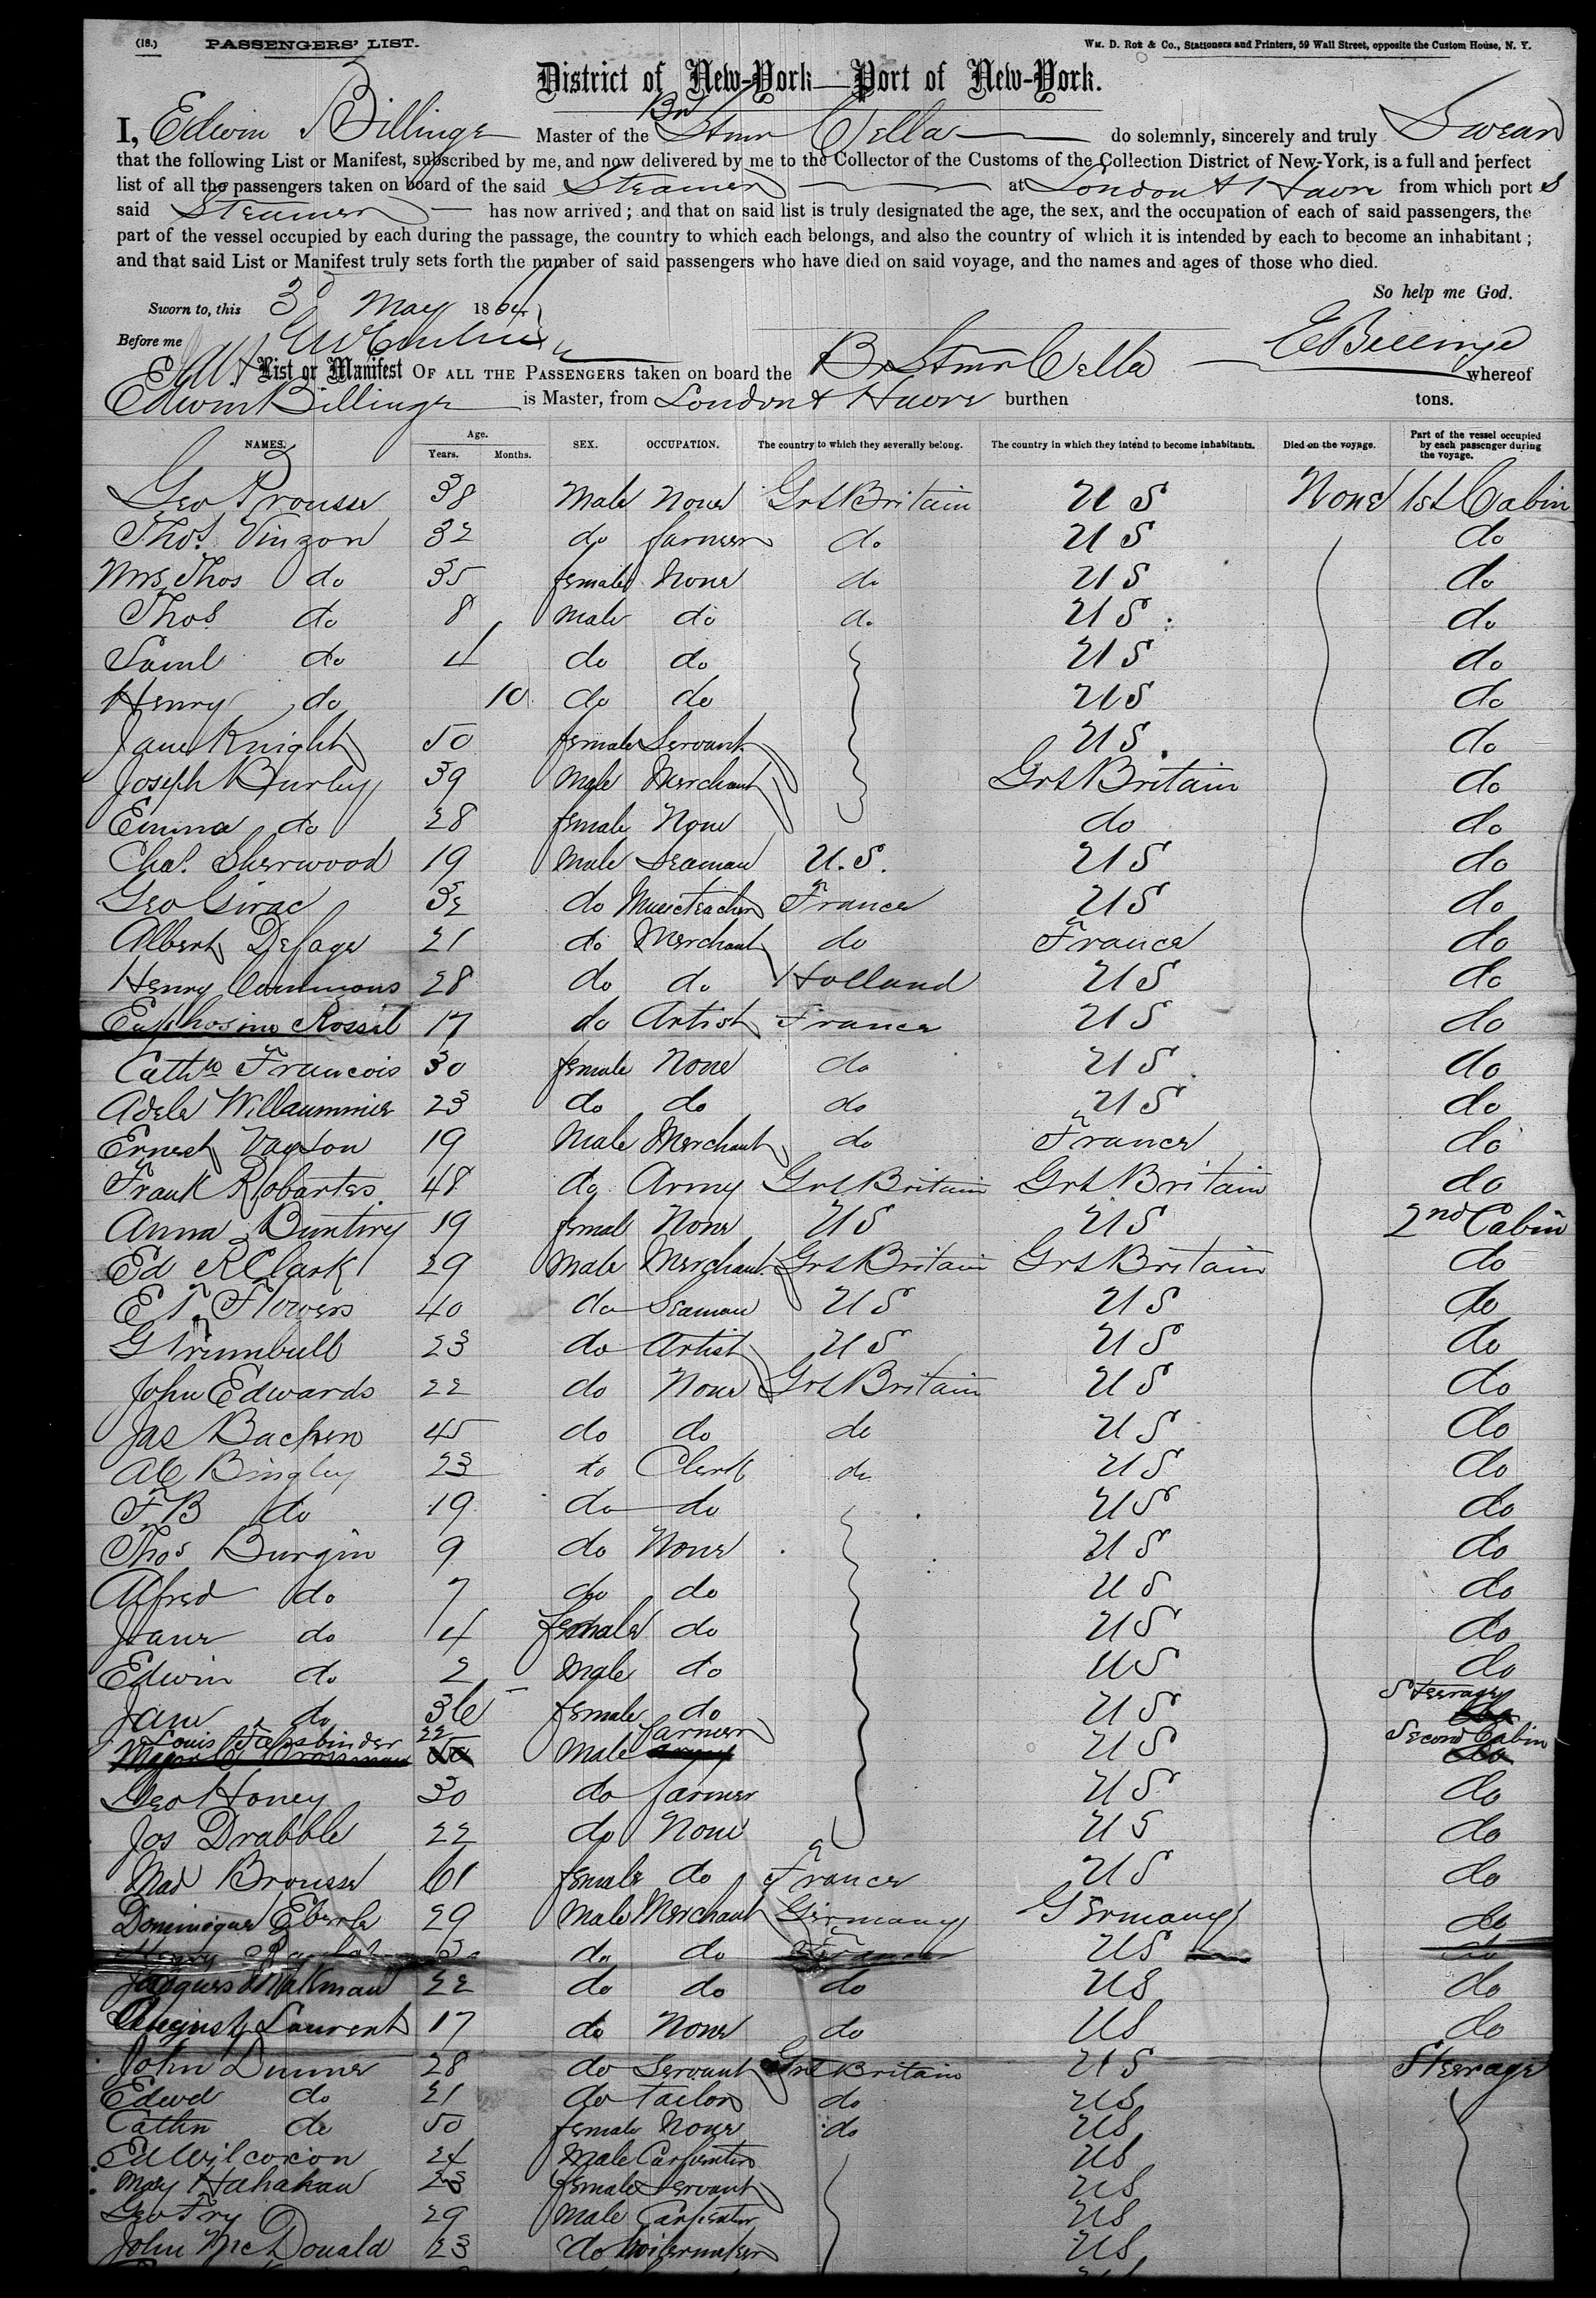 (18.) PASSENGERS' LIST. Wm. D. Roe & Co., Stationers and Printers, 59 Wall Street, opposite the Custom House, N. Y.
District of New-York—Port of New-York.
I, Edwin Billinge Master of the Br Stmr Cella do solemnly, sincerely and truly Swear
that the following List or Manifest, subscribed by me, and now delivered by me to the Collector of the Customs of the Collection District of New-York, is a full and perfect
list of all the passengers taken on board of the said Steamer at London & Havre from which port s
said Steamer has now arrived; and that on said list is truly designated the age, the sex, and the occupation of each of said passengers, the
part of the vessel occupied by each during the passage, the country to which each belongs, and also the country of which it is intended by each to become an inhabitant;
and that said List or Manifest truly sets forth the number of said passengers who have died on said voyage, and the names and ages of those who died.
So help me God.
Sworn to, this 3d May 1864
Before me E Billinge
List or Manifest OF ALL THE PASSENGERS taken on board the Br Stmr Cella whereof
Edwin Billinge is Master, from London & Havre burthen tons.
NAMES. Age. Years. Months. SEX. OCCUPATION. The country to which they severally belong. The country in which they intend to become inhabitants. Died on the voyage. Part of the vessel occupied by each passenger during the voyage.
Geo Prousse 38 Male None Grt Britain U S None 1st Cabin
Thos. Vinzon 32 do farmer do U S do
Mrs Thos do 35 female None do U S do
Thos do 8 male do do U S do
Saml do 4 do do U S do
Henry do 10 do do U S do
Jane Knight 50 female Servant U S do
Joseph Burley 39 Male Merchant Grt Britain do
Emma do 28 female None do do
Chas. Sherwood 19 Male Seaman U.S. U S do
Geo Girac 32 do Music teacher France U S do
Albert Delage 21 do Merchant do France do
Henry Commons 28 do do Holland U S do
Euphosine Rossil 17 do Artist France U S do
Cathn Francois 30 female None do U S do
Adele Willaummier 23 do do do U S do
Ernest 19 Male Merchant do France do
Frank Robartes 48 do Army Grt Britain Grt Britain do
Anna Bunting 19 femal None U S U S 2nd Cabin
Ed R Clark 29 Male Merchant Grt Britain Grt Britain do
E T Flowers 40 do Seaman U S U S do
G Trumbull 23 do Artist U S U S do
John Edwards 22 do None Grt Britain U S do
Jas Backen 45 do do do U S do
Bingley 23 do Clerk do U S do
F B do 19 do do U S do
Thos Burgin 9 do None U S do
Alfred do 7 do do U S do
Jane do 4 female do U S do
Edwin do 2 Male do U S do
Jane do 36 female do U S Steerage
Louis 22 Male farmer U S Second Cabin
Geo Honey 30 do farmer U S do
Jos Drabble 22 do None U S do
Mad Brousse 61 female do France U S do
Dominique Eberle 29 Male Merchant Germany Germany do
Henry do do France U S do
Jacques 22 do do do U S do
August Laurent 17 do None do U S do
John Dunner 28 do Servant Grt Britain U S Steerage
Edwd do 21 do tailor do U S
Cathn do 50 female None do U S
Ed Wilcoxion 24 Male Carpenter U S
Mary Hahahan 23 female Servant U S
Geo Fry 29 Male Carpenter U S
John McDonald 23 do boilermaker U S